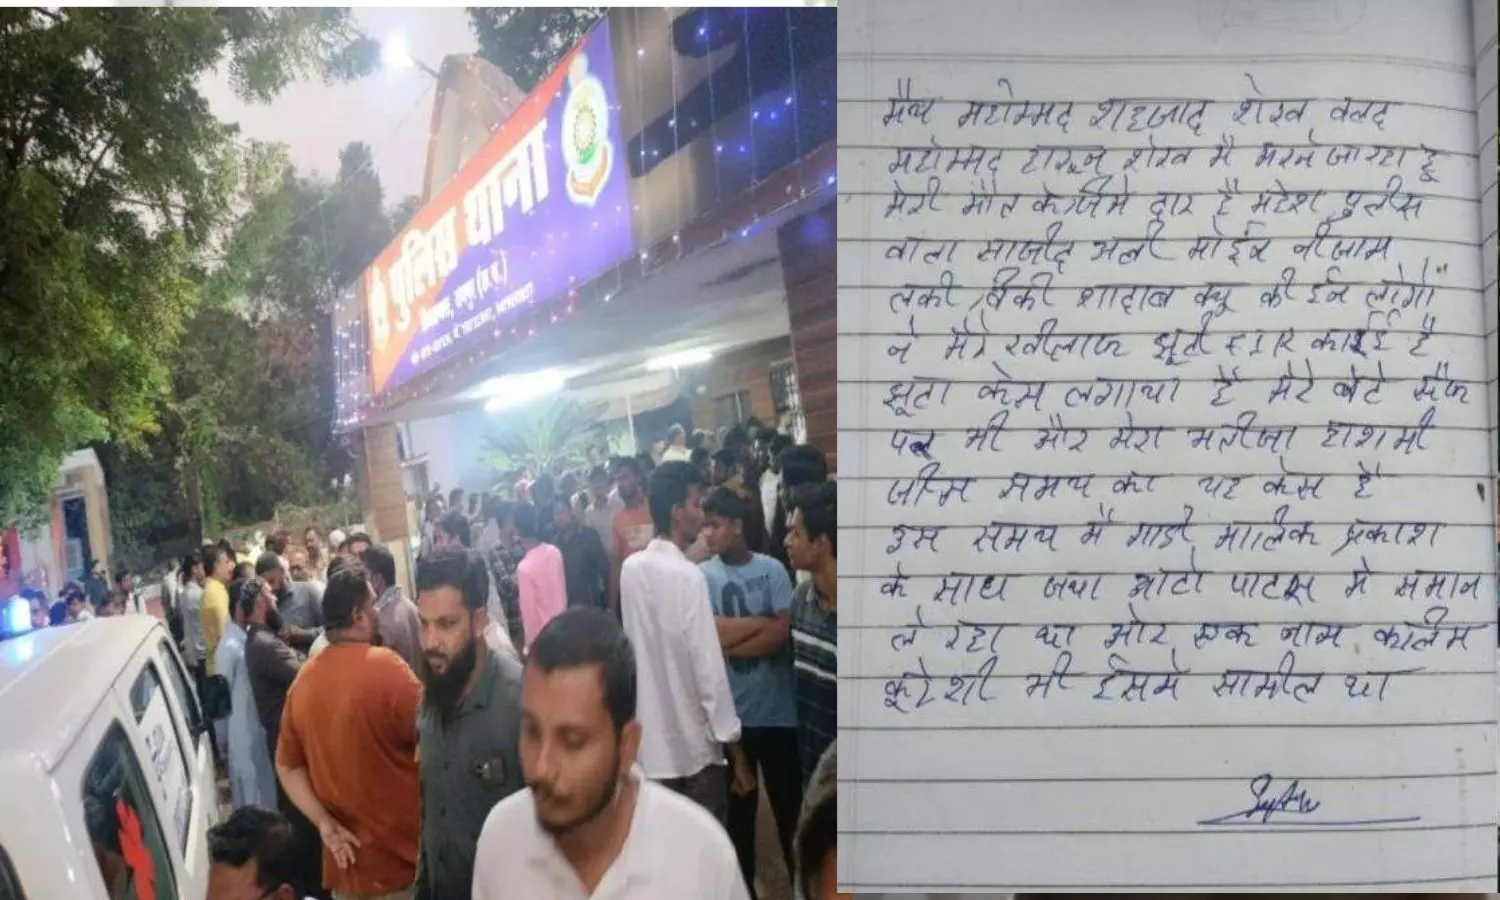 पुलिस थाना
मैय महोम्मद शहजाद शेख वलद
महोम्मद हारून शेख मै मरने जा रहा हू
मेरी मौत के जिमे दार है महेश पुलीस
वाला साजीद अली मोईन नीजाम
लकी, विकी शादाब क्यू की ईन लोगो
ने मेरे खीलाफ झूटी FIR काईई है
झूटा केस लगाया है मेरे बेटे सैफ
पर भी और मेरा भतीजा हाशमी
जीस समय का यह केस है
इस समय मै गाडी मालिक प्रकाश
के साथ जया ओटो पाटस मे समान
ले रहा था ओर एक नाम कालिम
कूरेशी भी ईसमे सामील था